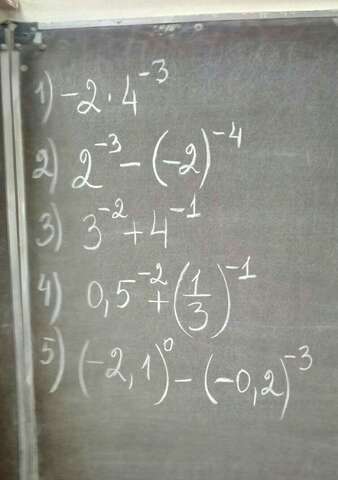 1) -2 · 4⁻³
2) 2⁻³ - (-2)⁻⁴
3) 3⁻² + 4⁻¹
4) 0,5⁻² + (1/3)⁻¹
5) (-2,1)⁰ - (-0,2)⁻³